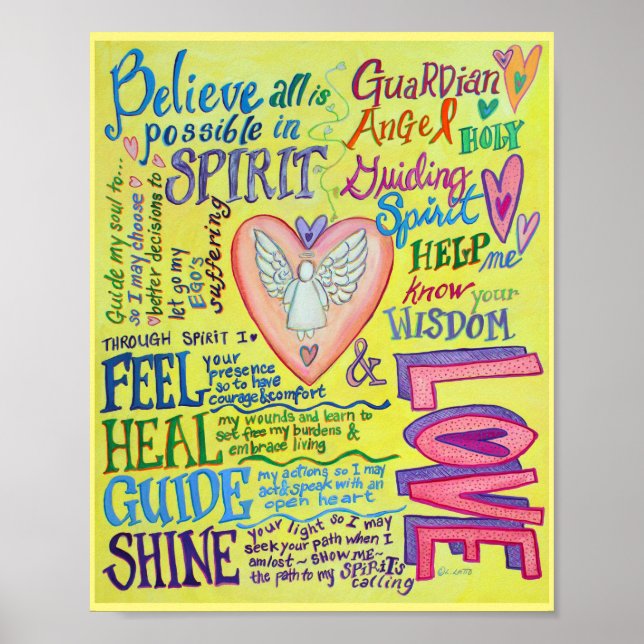 Believe all is
possible in
SPIRIT
Guide my soul to...
so I may choose
better decisions to
let go my
EGO's
suffering
Guardian
Angel
HOLY
Guiding
Spirit
HELP me
know your
WISDOM
&
LOVE
THROUGH SPIRIT I
FEEL your
presence
so to have
courage & comfort
HEAL my wounds and learn to
set free my burdens &
embrace living
GUIDE my actions so I may
act & speak with an
open heart
SHINE your light so I may
seek your path when I
am lost ~ SHOW ME ~
the path to my SPIRIT'S
calling